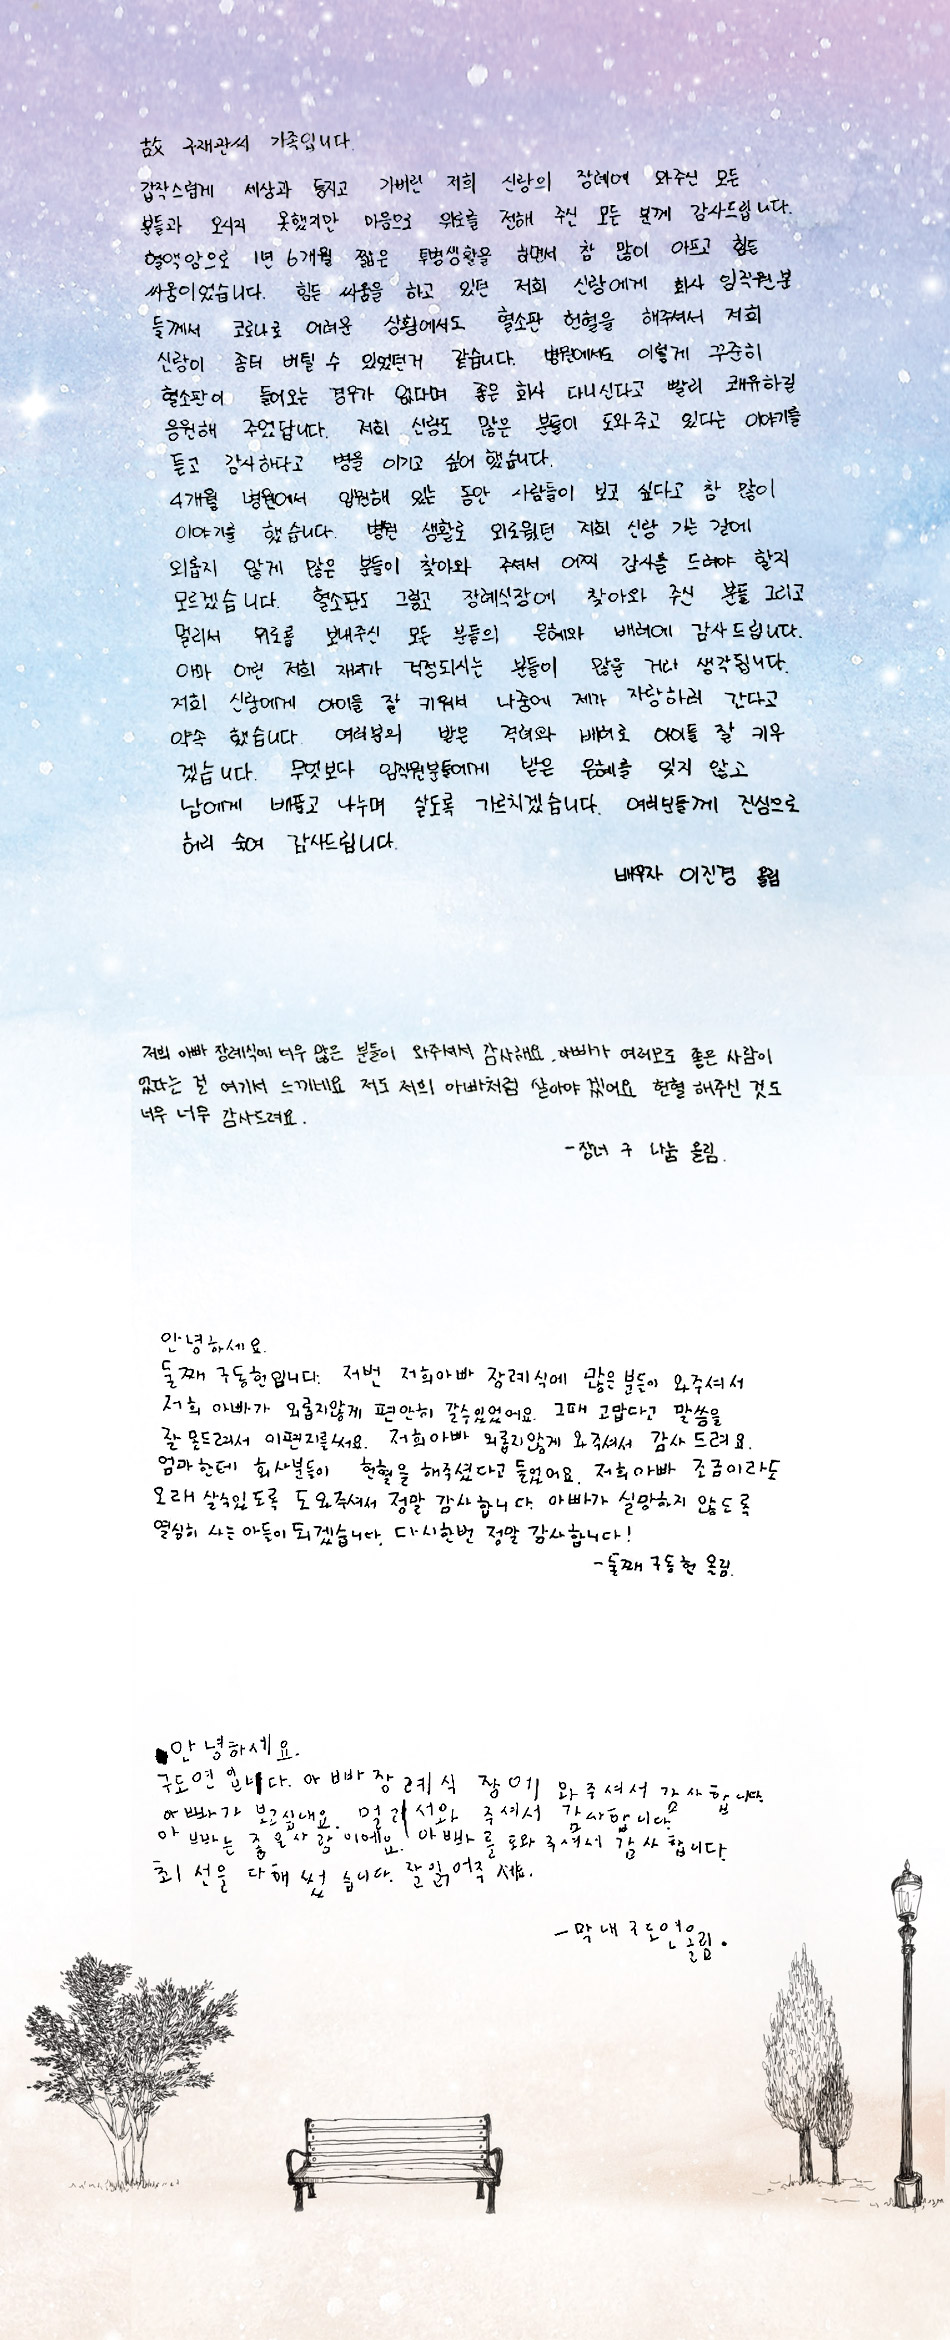 故 구재관씨 가족입니다.
갑작스럽게 세상과 등지고 가버린 저희 신랑의 장례에 와주신 모든
분들과 오시지 못했지만 마음으로 위로를 전해 주신 모든 분께 감사드립니다.
혈액암으로 1년 6개월 짧은 투병생활을 하면서 참 많이 아프고 힘든
싸움이었습니다. 힘든 싸움을 하고 있던 저희 신랑에게 회사 임직원분
들께서 코로나로 어려운 상황에서도 혈소판 헌혈을 해주셔서 저희
신랑이 좀더 버틸 수 있었던거 같습니다. 병원에서도 이렇게 꾸준히
혈소판이 들어오는 경우가 없다며 좋은 회사 다니신다고 빨리 쾌유하길
응원해 주었답니다. 저희 신랑도 많은 분들이 도와주고 있다는 이야기를
듣고 감사하다고 병을 이기고 싶어 했습니다.
4개월 병원에서 입원해 있는 동안 사람들이 보고 싶다고 참 많이
이야기를 했습니다. 병원 생활로 외로웠던 저희 신랑 가는 길에
외롭지 않게 많은 분들이 찾아와 주셔서 어찌 감사를 드려야 할지
모르겠습니다. 혈소판도 그렇고 장례식장에 찾아와 주신 분들 그리고
멀리서 위로를 보내주신 모든 분들의 은혜와 배려에 감사드립니다.
아마 어린 저희 재녀가 걱정되시는 분들이 많을 거라 생각됩니다.
저희 신랑에게 아이들 잘 키워서 나중에 제가 자랑하러 간다고
약속 했습니다. 여러분의 받은 격려와 배려로 아이들 잘 키우
겠습니다. 무엇보다 임직원분들에게 받은 은혜를 잊지 않고
남에게 베풀고 나누며 살도록 가르치겠습니다. 여러분들께 진심으로
허리 숙여 감사드립니다.
배우자 이진경 올림
저희 아빠 장례식에 너무 많은 분들이 와주셔서 감사해요. 아빠가 여러모로 좋은 사람이
었다는 걸 여기서 느끼네요 저도 저희 아빠처럼 살아야 겠어요 헌혈 해주신 것도
너무 너무 감사드려요.
-장녀 구 나눔 올림.
안녕하세요.
둘째 구동현입니다. 저번 저희아빠 장례식에 많은분들이 와주셔서
저희 아빠가 외롭지않게 편안히 갈수있었어요. 그때 고맙다고 말씀을
잘 못드려서 이편지를써요. 저희아빠 외롭지않게 와주셔서 감사 드려요.
엄마한테 회사분들이 헌혈을 해주셨다고 들었어요. 저희아빠 조금이라도
오래 살수있도록 도와주셔서 정말 감사합니다. 아빠가 실망하지 않도록
열심히 사는 아들이 되겠습니다. 다시한번 정말 감사합니다!
-둘째 구동현 올림.
안녕하세요.
구도연입니다. 아빠 장례식 장에 와주셔서 감사합니다.
아빠가 보고십내요. 멀리서와 주셔서 감사합니다.
아빠는 좋은사람이에요. 아빠를 도와주셔서 감사합니다.
최선을 다해 썼습니다. 잘읽어주세요.
-막내 구도연올림.